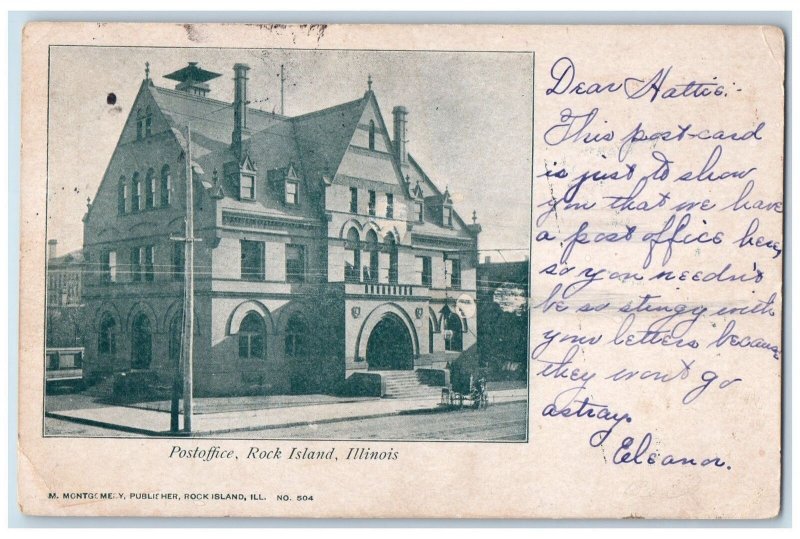 Dear Hattie:-
This post-card
is just to show
you that we have
a post office here,
so you needn't
be so stingy with
your letters because
they won't go
astray.
Eleanor.
Postoffice, Rock Island, Illinois
M. MONTGOMERY, PUBLISHER, ROCK ISLAND, ILL. NO. 504